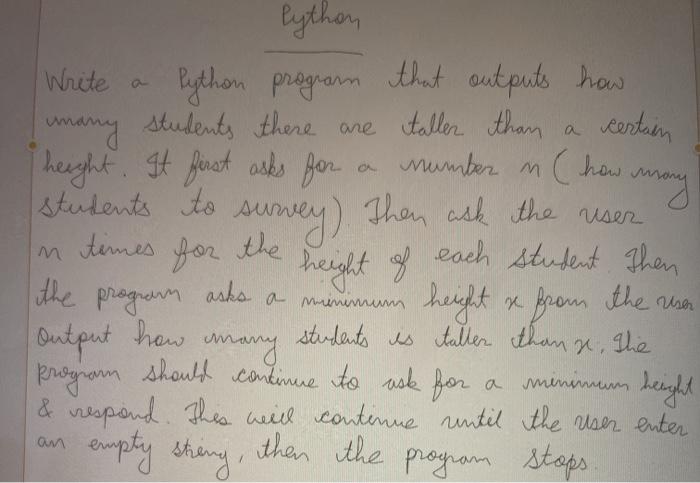 Python
Write a Python program that outputs how
many students there are taller than a certain
height. It first asks for a number n (how many
students to survey) Then ask the user
n times for the height of each student. Then
the program asks a minimum height x from the user
Output how many students is taller than x. The
program should continue to ask for a minimum height
& respond. This will continue until the user enter
an empty string, then the program stops.